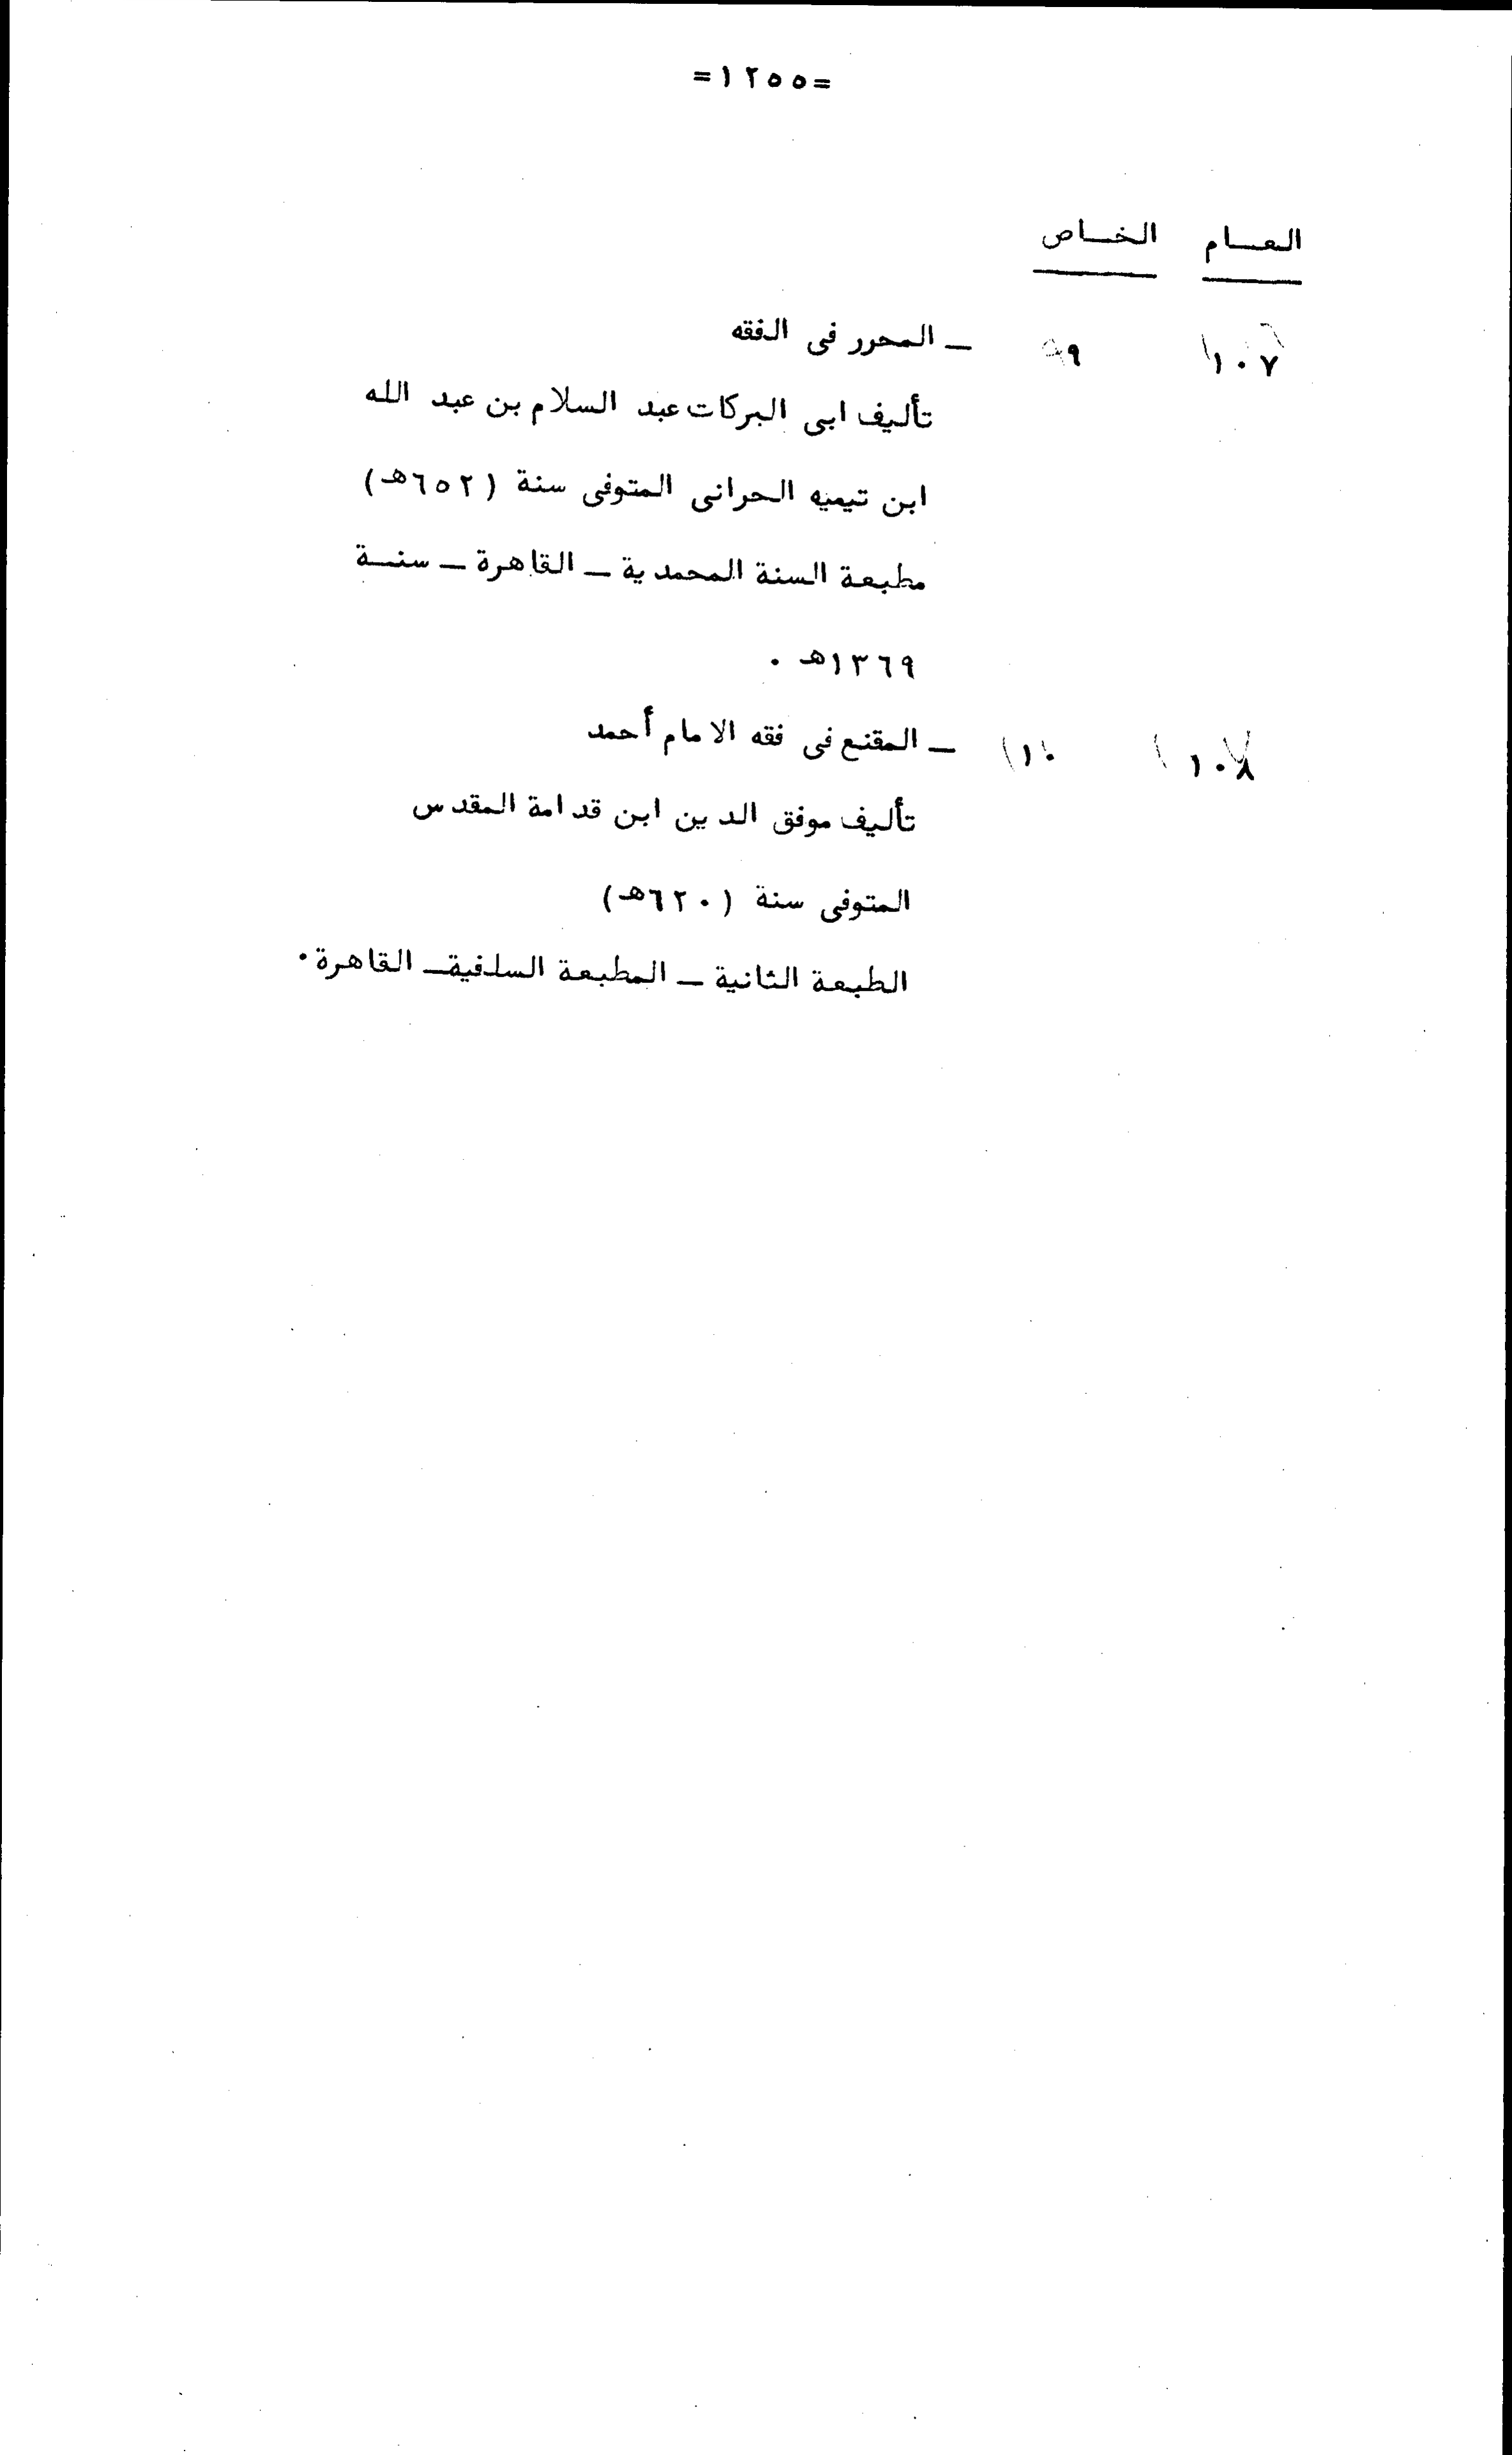 =١٢٥٥=
العــام الخــاص
١٠٧ ٩ ـ المحرر فى الفقه
تأليف ابى البركات عبد السلام بن عبد الله
ابن تيميه الحرانى المتوفى سنة (٦٥٢هـ)
مطبعة السنة المحمدية ـ القاهرة ـ سنــة
١٣٦٩هـ .
١٠٨ ١٠ ـ المقنع فى فقه الامام أحمد
تأليف موفق الدين ابن قدامة المقدس
المتوفى سنة (٦٢٠هـ)
الطبعة الثانية ـ المطبعة السلفية ـ القاهرة .